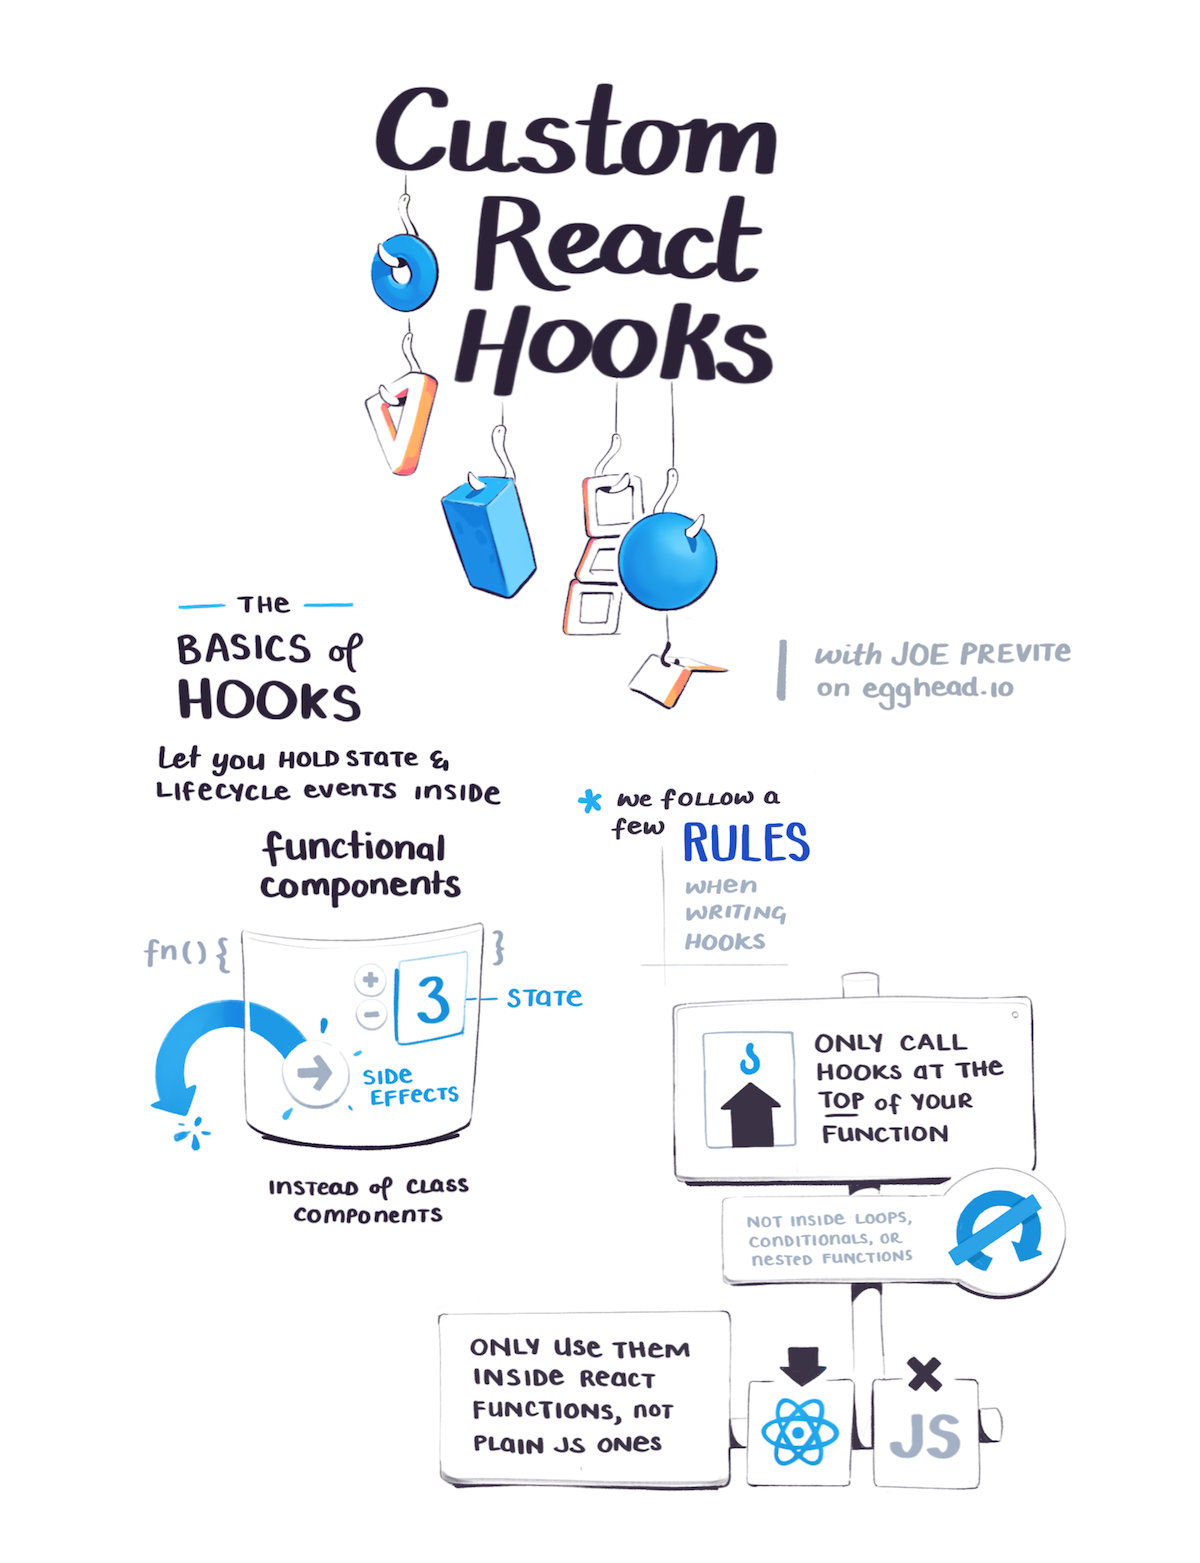 Custom
React
Hooks
with JOE PREVITE
on egghead.io
THE
BASICS of
HOOKS
Let you HOLD STATE &
LIFECYCLE EVENTS INSIDE
functional
components
fn() { }
3
STATE
SIDE
EFFECTS
INSTEAD of CLASS
COMPONENTS
* WE FOLLOW A
few RULES
WHEN
WRITING
HOOKS
ONLY CALL
HOOKS AT THE
TOP of YOUR
FUNCTION
NOT INSIDE LOOPS,
CONDITIONALS, OR
NESTED FUNCTIONS
ONLY USE THEM
INSIDE REACT
FUNCTIONS, NOT
PLAIN JS ONES
JS